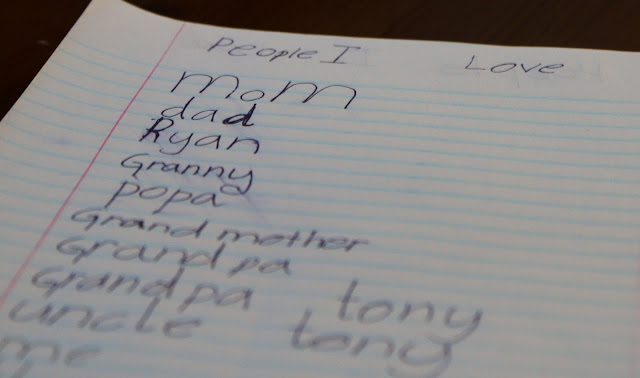 People I Love
Mom
dad
Ryan
Granny
Popa
Grandmother
Grandpa
Grandpa tony
uncle tony
me